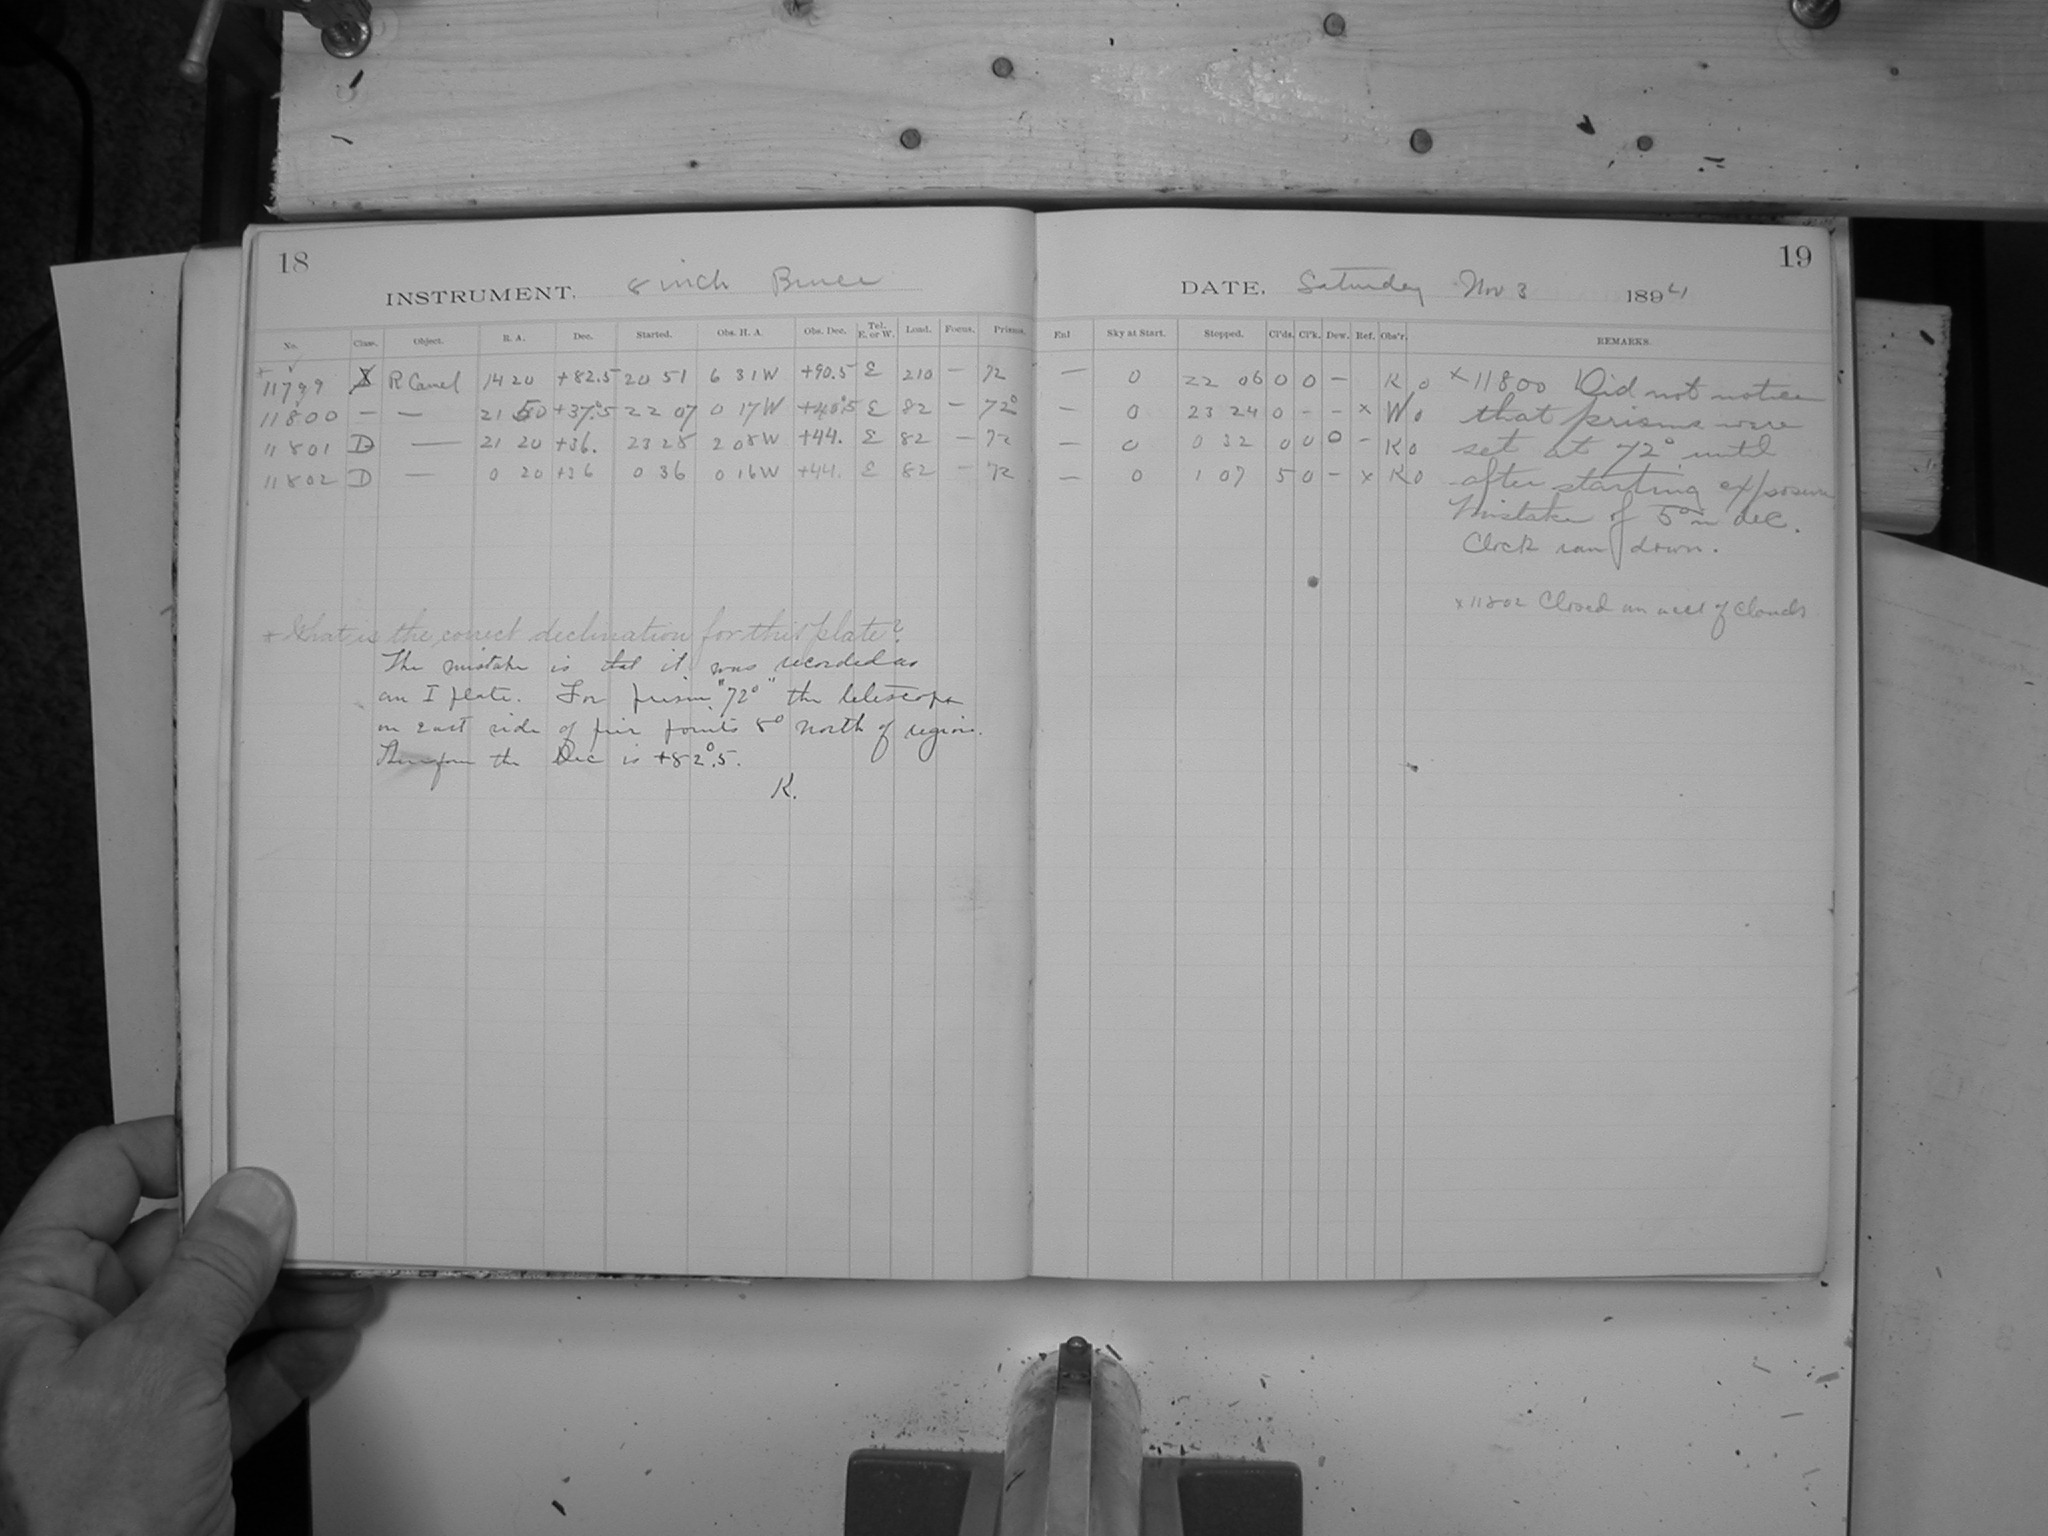 18
INSTRUMENT. 8 inch Bruce
No. Class. Object. R. A. Dec. Started. Obs. H. A. Obs. Dec. Tel. E. or W. Lond. Focus. Prisms.
11799 I R Camel 14 20 +82.5 20 51 6 31 W +90.5 E 210 — 72
11800 — — 21 50 +37°.5 22 07 0 17 W +40°.5 E 82 — 72°
11801 D — 21 20 +36. 23 28 2 08 W +44. E 82 — 72
11802 D — 0 20 +36 0 36 0 16 W +44. E 82 — 72
+ What is the correct declination for this plate?
The mistake is that it was recorded as
an I plate. For prism "72°" the telescope
on East side of pier points 8° north of region.
Therefore the Dec is +82°.5.
K.
19
DATE. Saturday Nov 3 1894
Enl Sky at Start. Stopped. Cl'ds. Cl'k. Dew. Ref. Obs'r. REMARKS.
— 0 22 06 0 0 — K 0
— 0 23 24 0 - - x W 0
— 0 0 32 0 0 0 - K 0
— 0 1 07 5 0 - x K 0
x 11800 Did not notice
that prisms were
set at 72° until
after starting exposure
Mistake of 5° in dec.
Clock ran down.
x 11802 Closed on acct of clouds